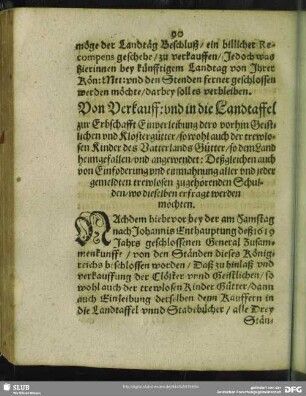 90
möge der Landtäg Beschluß / ein billicher Re-
compens geschehe / zu verkauffen / Jedoch was
hierinnen bey künfftigem Landtag von Ihrer
Kön: Met: vnd den Stenden ferner geschlossen
werden möchte / darbey soll es verbleiben.
Von Verkauff: vnd in die Landtaffel
zur Erbschafft Einverleibung derp vorhin Geist-
lichen vnd Klostergütter / so wohl auch der trewlo-
sen Kinder des Vatterlands Gütter / so dem Land
heimgefallen / vnd angewendet: Deßgleichen auch
von Einfoderung vnd einnahmung aller vnd jeder
gemeldten trewlosen zugehörenden Schul-
den / wo dieselben erfragt werden
möchten.
NAchdem hiebevor bey der am Samstag
nach Johannis Enthauptung deß 1619
Jahrs geschlossenen General Zusam-
menkunfft / von den Ständen dieses König-
reichs b:schlossen worden / Daß zu hinlaß vnd
verkauffung der Clöster vnnd Geistlichen / so
wohl auch der trewlosen Kinder Gütter / dann
auch Einleibung derselben denn Kauffern in
die Landtaffel vnnd Stadtbücher / alle Drey
Stän-
SLUB
DFG